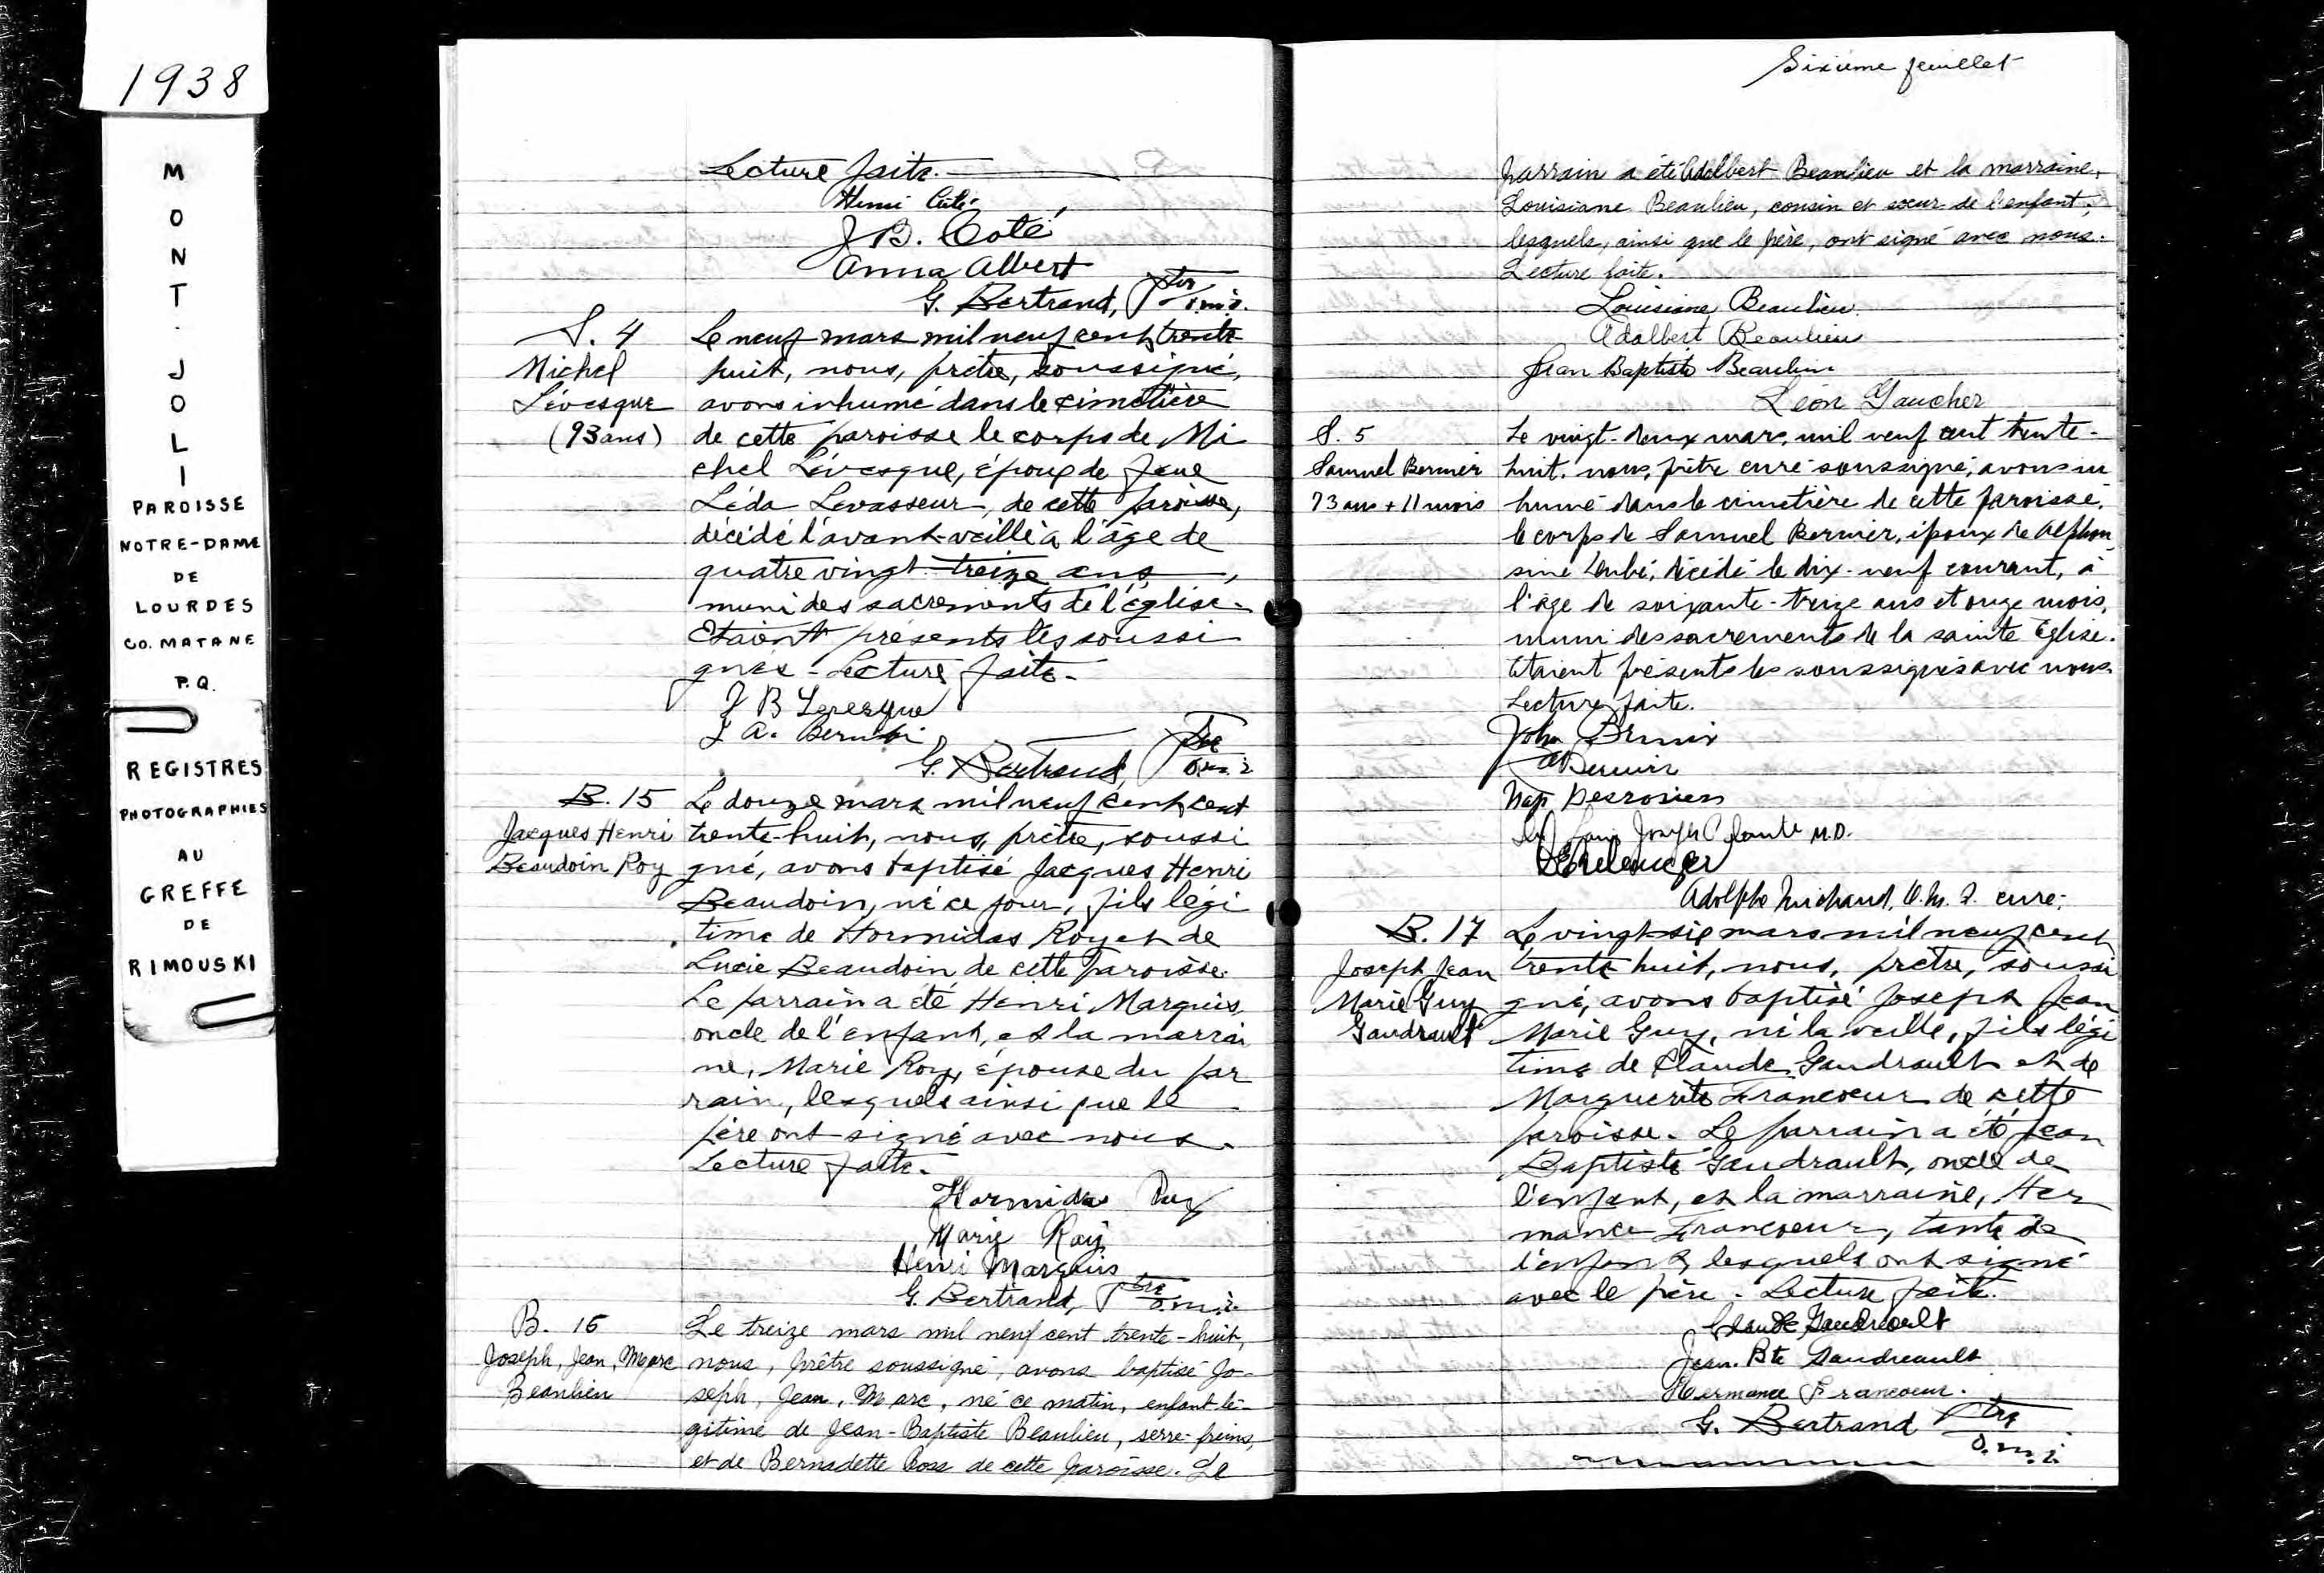 1938
MONT-JOLI
PAROISSE
NOTRE-DAME
DE
LOURDES
CO. MATANE
P.Q.
REGISTRES
PHOTOGRAPHIES
AU
GREFFE
DE
RIMOUSKI
Lecture faite.
Henri Côté
J.B. Coté
Anna Albert
G. Bertrand, ptre o.m.i.
S. 4
Michel
Lévesque
(93 ans)
Le neuf mars mil neuf cent trente
huit, nous, prêtre, soussigné,
avons inhumé dans le cimetière
de cette paroisse le corps de Mi
chel Lévesque, époux de feue
Léda Levasseur, de cette paroisse,
décédé l'avant-veille à l'âge de
quatre vingt treize ans,
muni des sacrements de l'église.
Etaient présents les soussi
gnés - Lecture faite.
J B Levesque
J A.
G. Bertrand, ptre o.m.i
B. 15
Jacques Henri
Beaudoin Roy
Le douze mars mil neuf cent cent
trente-huit, nous, prêtre, soussi
gné, avons baptisé Jacques Henri
Beaudoin, né ce jour, fils légi
time de Hormidas Roy et de
Lucie Beaudoin de cette paroisse.
Le parrain a été Henri Marquis,
oncle de l'enfant, et la marrai
ne, Marie Roy, épouse du par
rain, lesquels ainsi que le
père ont signé avec nous.
Lecture faite.
Hormidas Roy
Marie Roy
Henri Marquis
G. Bertrand, ptre o.m.i.
B. 16
Joseph, Jean, Marc
Beaulieu
Le treize mars mil neuf cent trente-huit,
nous, prêtre soussigné, avons baptisé Jo-
seph, Jean, Marc, né ce matin, enfant lé-
gitime de Jean-Baptiste Beaulieu, serre-freins,
et de Bernadette Ross de cette paroisse. Le
Sixième feuillet
parrain a été Adalbert Beaulieu et la marraine,
Louisiane Beaulieu, cousin et soeur de l'enfant,
lesquels, ainsi que le père, ont signé avec nous.
Lecture faite.
Louisiane Beaulieu
Adalbert Beaulieu
Jean Baptiste Beaulieu
Léon Gaucher
S. 5
Samuel Bernier
73 ans + 11 mois
Le vingt-deux mars, mil neuf cent trente-
huit, nous, prêtre curé soussigné, avons in
humé dans le cimetière de cette paroisse,
le corps de Samuel Bernier, époux de Alphon
sine décédé le dix-neuf courant, à
l'âge de soixante-treize ans et onze mois,
muni des sacrements de la sainte Eglise.
Etaient présents les soussignés avec nous.
Lecture faite.
John Bernier
Bernier
Nap Desrosiers
Joseph Plante M.D.
Adolphe Michaud, O.M.I. curé.
B. 17
Joseph Jean
Marie Guy
Gaudrault
Le vingt-six mars mil neuf cent
trente huit, nous, prêtre, soussi
gné, avons baptisé Joseph Jean
Marie Guy, né la veille, fils légi
time de Claude Gaudrault et de
Marguerite Francoeur de cette
paroisse. Le parrain a été Jean
Baptiste Gaudrault, oncle de
l'enfant, et la marraine, Her
mance Francoeur, tante de
l'enfant lesquels ont signé
avec le père. Lecture faite.
Claude Gaudreault
Jean. Bte Gaudreault
Hermance Francoeur.
G. Bertrand ptre
o.m.i.